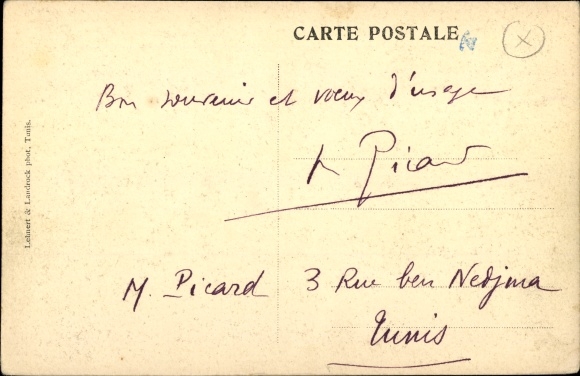 CARTE POSTALE
Bon souvenir et voeux d'usage
M Picard
M. Picard 3 Rue ben Nedjma
Tunis
Lehnert & Landrock phot, Tunis.